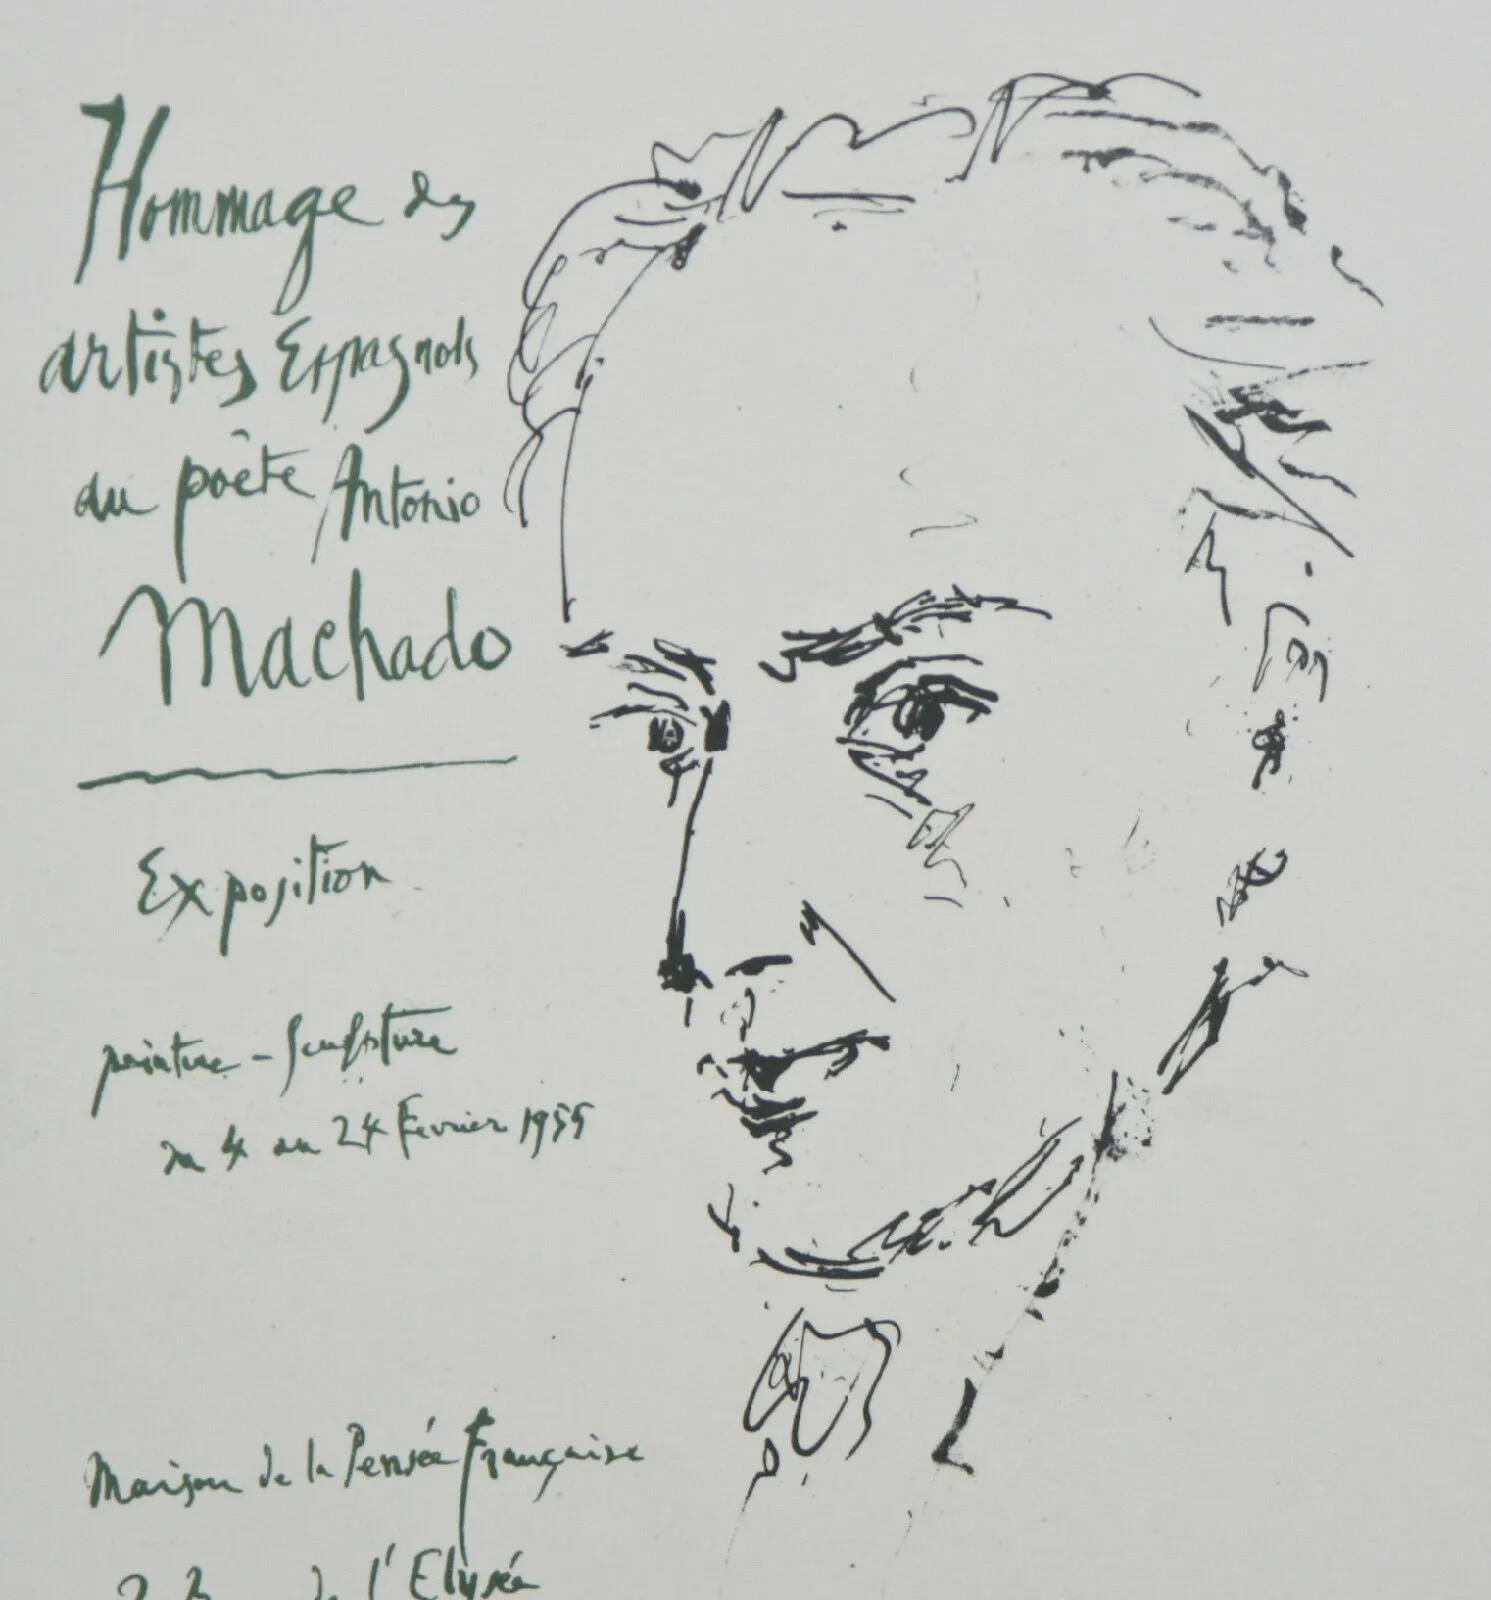 Hommage des
artistes Espagnols
du poète Antonio
Machado
Exposition
peinture - Sculpture
du 4 au 24 Fevrier 1955
Maison de la Pensée Française
de l'Elysée